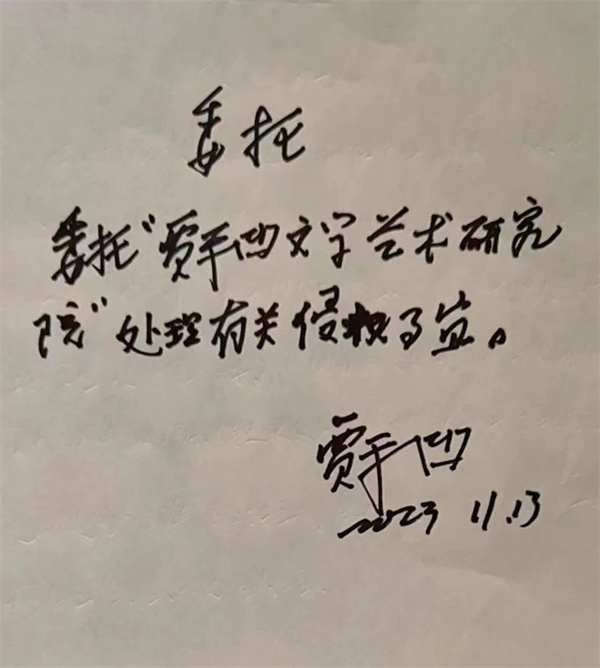 委托
委托"贾平凹文学艺术研究
院"处理有关侵权事宜。
贾平凹
2023 11.13